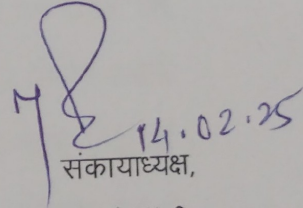 14.02.25
संकायाध्यक्ष,